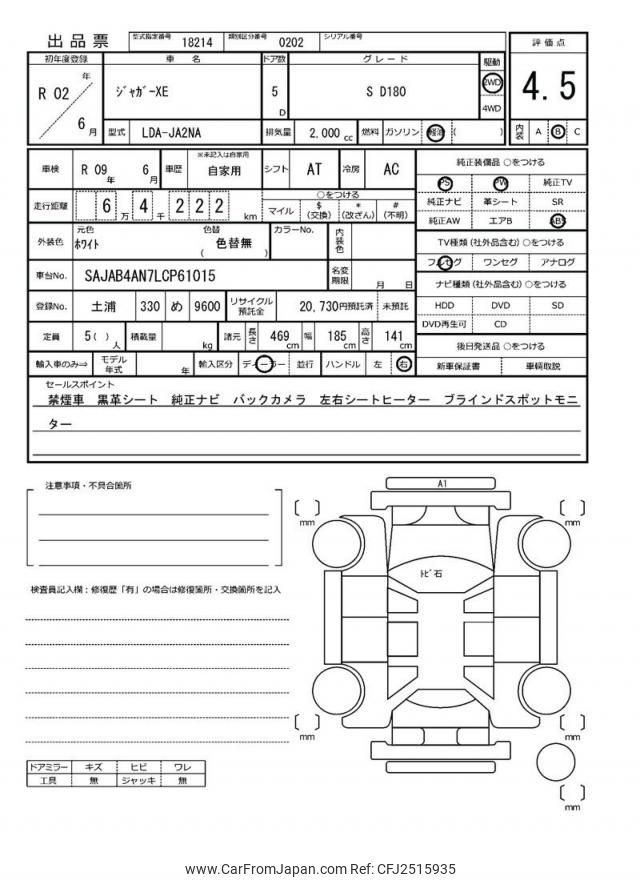 出品票 型式指定番号 18214 類別区分番号 0202 シリアル番号
初年度登録 車名 ドア数 グレード 駆動 評価点
R 02 年 6 月 ｼﾞｬｶﾞｰXE 5 D S D180 2WD 4WD 4.5
型式 LDA-JA2NA 排気量 2,000 cc 燃料 ガソリン 軽油 ( ) 内装 A B C
車検 R 09 年 6 月 車歴 ※未記入は自家用 自家用 シフト AT 冷房 AC
走行距離 6 万 4 千 2 2 2 km ○をつける マイル $ (交換) * (改ざん) # (不明)
外装色 元色 ﾎﾜｲﾄ 色替 ( 色替無 ) カラーNo. 内装色
車台No. SAJAB4AN7LCP61015 名変期限 月 日
登録No. 土浦 330 め 9600 リサイクル預託金 20,730 円預託済 未預託
定員 5 ( ) 人 積載量 kg 諸元 長さ 469 cm 幅 185 cm 高さ 141 cm
輸入車のみ⇒ モデル年式 年 輸入区分 ディーラー 並行 ハンドル 左 右
純正装備品 ○をつける
PS PW 純正TV
純正ナビ 革シート SR
純正AW エアB ABS
TV種類 (社外品含む) ○をつける
フルセグ ワンセグ アナログ
ナビ種類 (社外品含む) ○をつける
HDD DVD SD
DVD再生可 CD
後日発送品 ○をつける
新車保証書 車輌取説
セールスポイント
禁煙車 黒革シート 純正ナビ バックカメラ 左右シートヒーター ブラインドスポットモニ
ター
注意事項・不具合箇所
検査員記入欄：修復歴「有」の場合は修復箇所・交換箇所を記入
A1
ﾄﾋﾞ石
[ ] mm
[ ] mm
[ ] mm
[ ] mm
[ ] mm
ドアミラー キズ ヒビ ワレ
工具 無 ジャッキ 無
www.CarFromJapan.com Ref: CFJ2515935